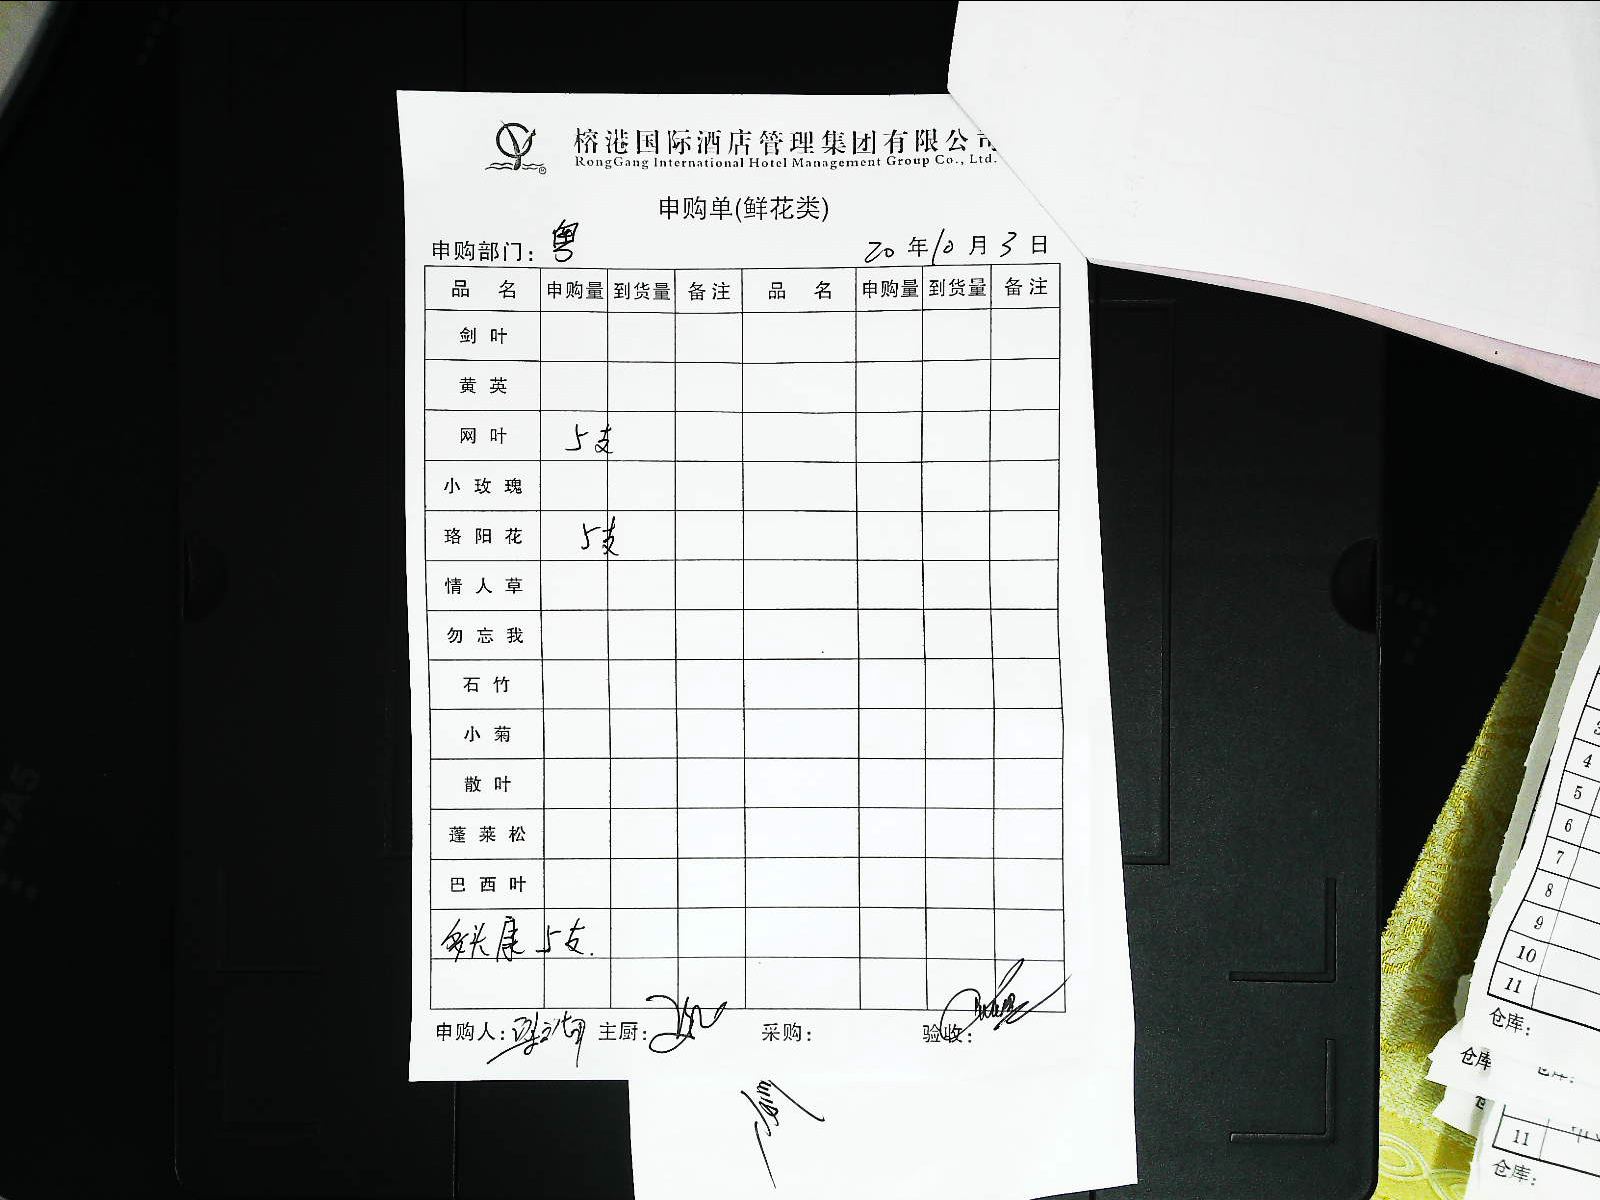 榕港国际酒店管理集团有限公司
RongGang International Hotel Management Group Co., Ltd.
申购单(鲜花类)
申购部门: 粤 20 年 10 月 3 日
品名 申购量 到货量 备注 品名 申购量 到货量 备注
剑叶
黄英
网叶 5支
小玫瑰
珞阳花 5支
情人草
勿忘我
石竹
小菊
散叶
蓬莱松
巴西叶
康 5支.
申购人: 主厨: 采购: 验收:
3
4
5
6
7
8
9
10
11
仓库:
仓库
11
仓库: